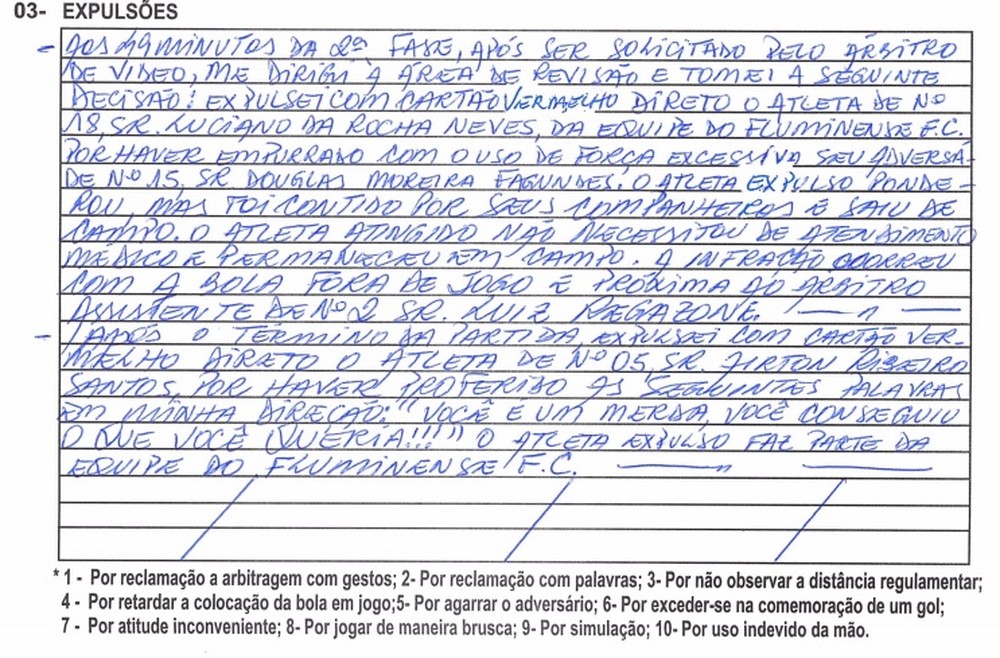 03- EXPULSÕES
- AOS 49 MINUTOS DA 2ª FASE, APÓS SER SOLICITADO PELO ÁRBITRO
DE VIDEO, ME DIRIGI À ÁREA DE REVISÃO E TOMEI A SEGUINTE
DECISÃO: EXPULSEI COM CARTÃO VERMELHO DIRETO O ATLETA DE Nº
18, SR. LUCIANO DA ROCHA NEVES, DA EQUIPE DO FLUMINENSE F.C.
POR HAVER EMPURRADO COM O USO DE FORÇA EXCESSIVA SEU ADVERSÁ-
DE Nº 15, SR. DOUGLAS MOREIRA FAGUNDES. O ATLETA EXPULSO PONDE-
ROU, MAS FOI CONTIDO POR SEUS COMPANHEIROS E SAIU DE
CAMPO. O ATLETA ATINGIDO NÃO NECESSITOU DE ATENDIMENTO
MÉDICO E PERMANECEU EM CAMPO. A INFRAÇÃO OCORREU
COM A BOLA FORA DE JOGO E PRÓXIMA AO ÁRBITRO
ASSISTENTE DE Nº 2 SR. LUIZ REGAZONE.
- APÓS O TÉRMINO DA PARTIDA, EXPULSEI COM CARTÃO VER-
MELHO DIRETO O ATLETA DE Nº 05, SR. AIRTON RIBEIRO
SANTOS, POR HAVER PROFERIDO AS SEGUINTES PALAVRAS
EM MINHA DIREÇÃO: "VOCÊ É UM MERDA, VOCÊ CONSEGUIU
O QUE VOCÊ QUERIA!!!!" O ATLETA EXPULSO FAZ PARTE DA
EQUIPE DO FLUMINENSE F.C.
* 1 - Por reclamação a arbitragem com gestos; 2- Por reclamação com palavras; 3- Por não observar a distância regulamentar;
4 - Por retardar a colocação da bola em jogo;5- Por agarrar o adversário; 6- Por exceder-se na comemoração de um gol;
7 - Por atitude inconveniente; 8- Por jogar de maneira brusca; 9- Por simulação; 10- Por uso indevido da mão.